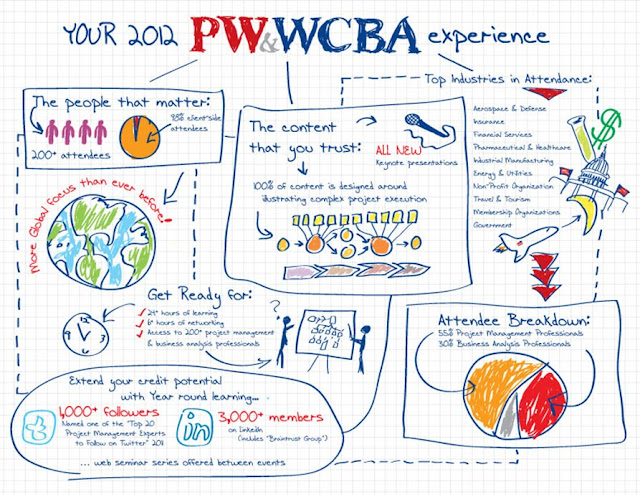 YOUR 2012 PW&WCBA experience
The people that matter:
98% client-side
attendees
200+ attendees
More Global focus than ever before!
The content
that you trust:
ALL NEW
Keynote presentations
100% of content is designed around
illustrating complex project execution
Top Industries in Attendance:
Aerospace & Defense
Insurance
Financial Services
Pharmaceutical & Healthcare
Industrial Manufacturing
Energy & Utilities
Non-Profit Organization
Travel & Tourism
Membership Organizations
Government
Get Ready for:
of learning
of networking
Access to 200+ project management
& business analysis professionals
12
3
6
9
Attendee Breakdown:
55% Project Management Professionals
30% Business Analysis Professionals
Extend your credit potential
with Year round learning...
4,000+ followers
Named one of the "Top 20
Project Management Experts
to Follow on Twitter" 2011
in
3,000+ members
on LinkedIn
(includes "Braintrust Group")
... web seminar series offered between events